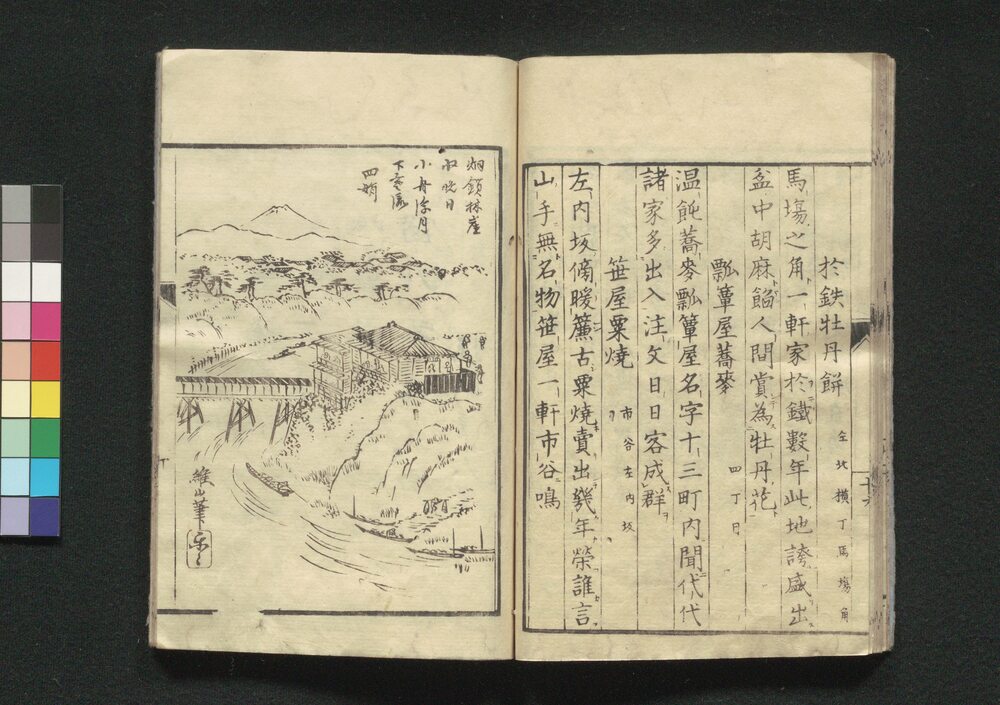 於鉄牡丹餅 仝北横丁馬塲角
馬塲之角一軒家於鐵數年此地誇盛出
盆中胡麻餡人間賞為牡丹花
瓢簞屋蕎麥 四丁目
温飩蕎麥瓢簞屋名字十三町内聞代代
諸家多出入注文日日客成群
笹屋粟燒 市谷左内坂
左内坂傍暖簾古粟燒賣出幾年榮誰言
山手無名物笹屋一軒市谷鳴
烟鎖林崖
小舟浮月
維山筆